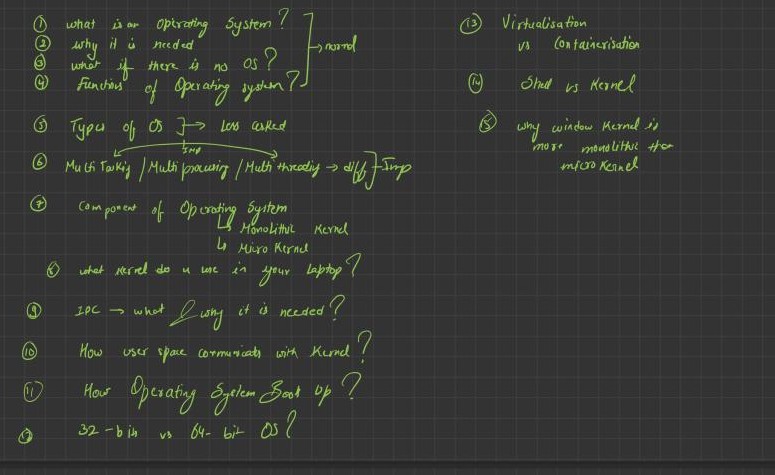 ① what is an Operating System?
② why it is needed
③ what if there is no OS?
④ Functions of Operating system?
→ normal
⑤ Types of OS → Less asked
Imp
⑥ Multi Tasking / Multi processing / Multi threading → diff → Imp
⑦ Component of Operating System
↳ Monolithic Kernel
↳ Micro Kernel
⑧ what kernel do u use in your laptop?
⑨ IPC → what & why it is needed?
⑩ How user space communicate with Kernel?
⑪ How Operating System Boot Up?
⑫ 32-bit vs 64-bit OS?
⑬ Virtualisation
vs Containerisation
⑭ Shell vs Kernel
⑮ why window Kernel is
more monolithic than
micro Kernel